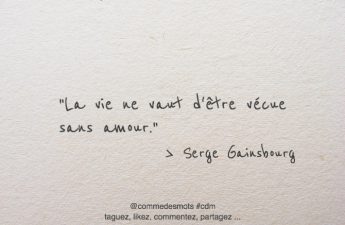 "La vie ne vaut d'être vécue
sans amour."
> Serge Gainsbourg
@commedesmots #cdm
taguez, likez, commentez, partagez ...